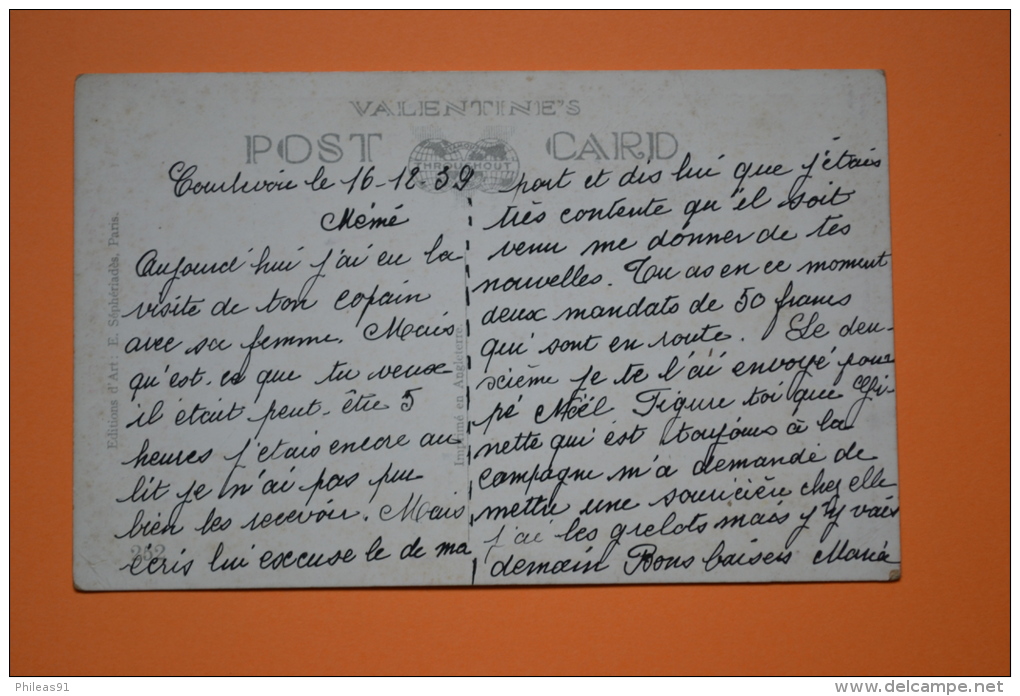 VALENTINE'S
POST CARD
THROUGHOUT
Courbevoie le 16-12.39
Mémé
Aujourd'hui j'ai eu la
visite de ton copain
avec sa femme. Mais
qu'est-ce que tu veux
il était peut-être 5
heures j'étais encore au
lit je n'ai pas pu
bien les recevoir. Mais
écris lui excuse le de ma
part et dis lui que j'étais
très contente qu'il soit
venu me donner de tes
nouvelles. Tu as en ce moment
deux mandats de 50 francs
qui sont en route. Le deu-
xième je te l'ai envoyé pour
pé Noël Figure toi que Gi-
nette qui est toujours à la
campagne m'a demandé de
mettre une souricière chez elle
j'ai les grelots mais j'y vais
demain Bons baisers Maria
Editions d'Art : E. Séphériadès, Paris.
Imprimé en Angleterre.
252
Phileas91
www.delcampe.net